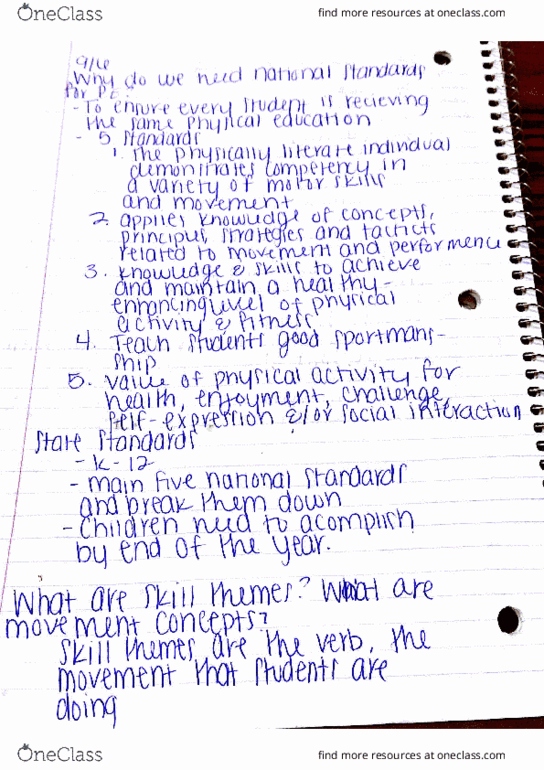 OneClass
find more resources at oneclass.com
9/6
Why do we need national standards
for PE?
- To ensure every student is recieving
the same physical education
- 5 standards
1. The physically literate individual
demonstrates competency in
a variety of motor skills
and movement
2. applies knowledge of concepts,
principles, strategies and tacticts
related to movement and performence
3. knowledge & skills to achieve
and maintain a healthy-
enhancing level of physical
activity & fitness
4. Teach students good sportmans-
ship
5. value of physical activity for
health, enjoyment, challenge,
self-expression &/or social interaction
State Standards
- K-12
- main five national standards
and break them down
- Children need to acomplish
by end of the year.
What are skill themes? What are
movement concepts?
skill themes are the verb, the
movement that students are
doing
OneClass
find more resources at oneclass.com